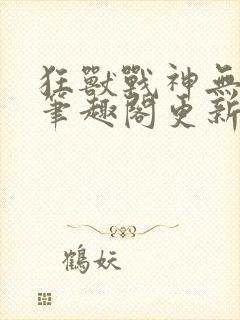 狂獸戰神無
筆趣閣更新
鶴妖